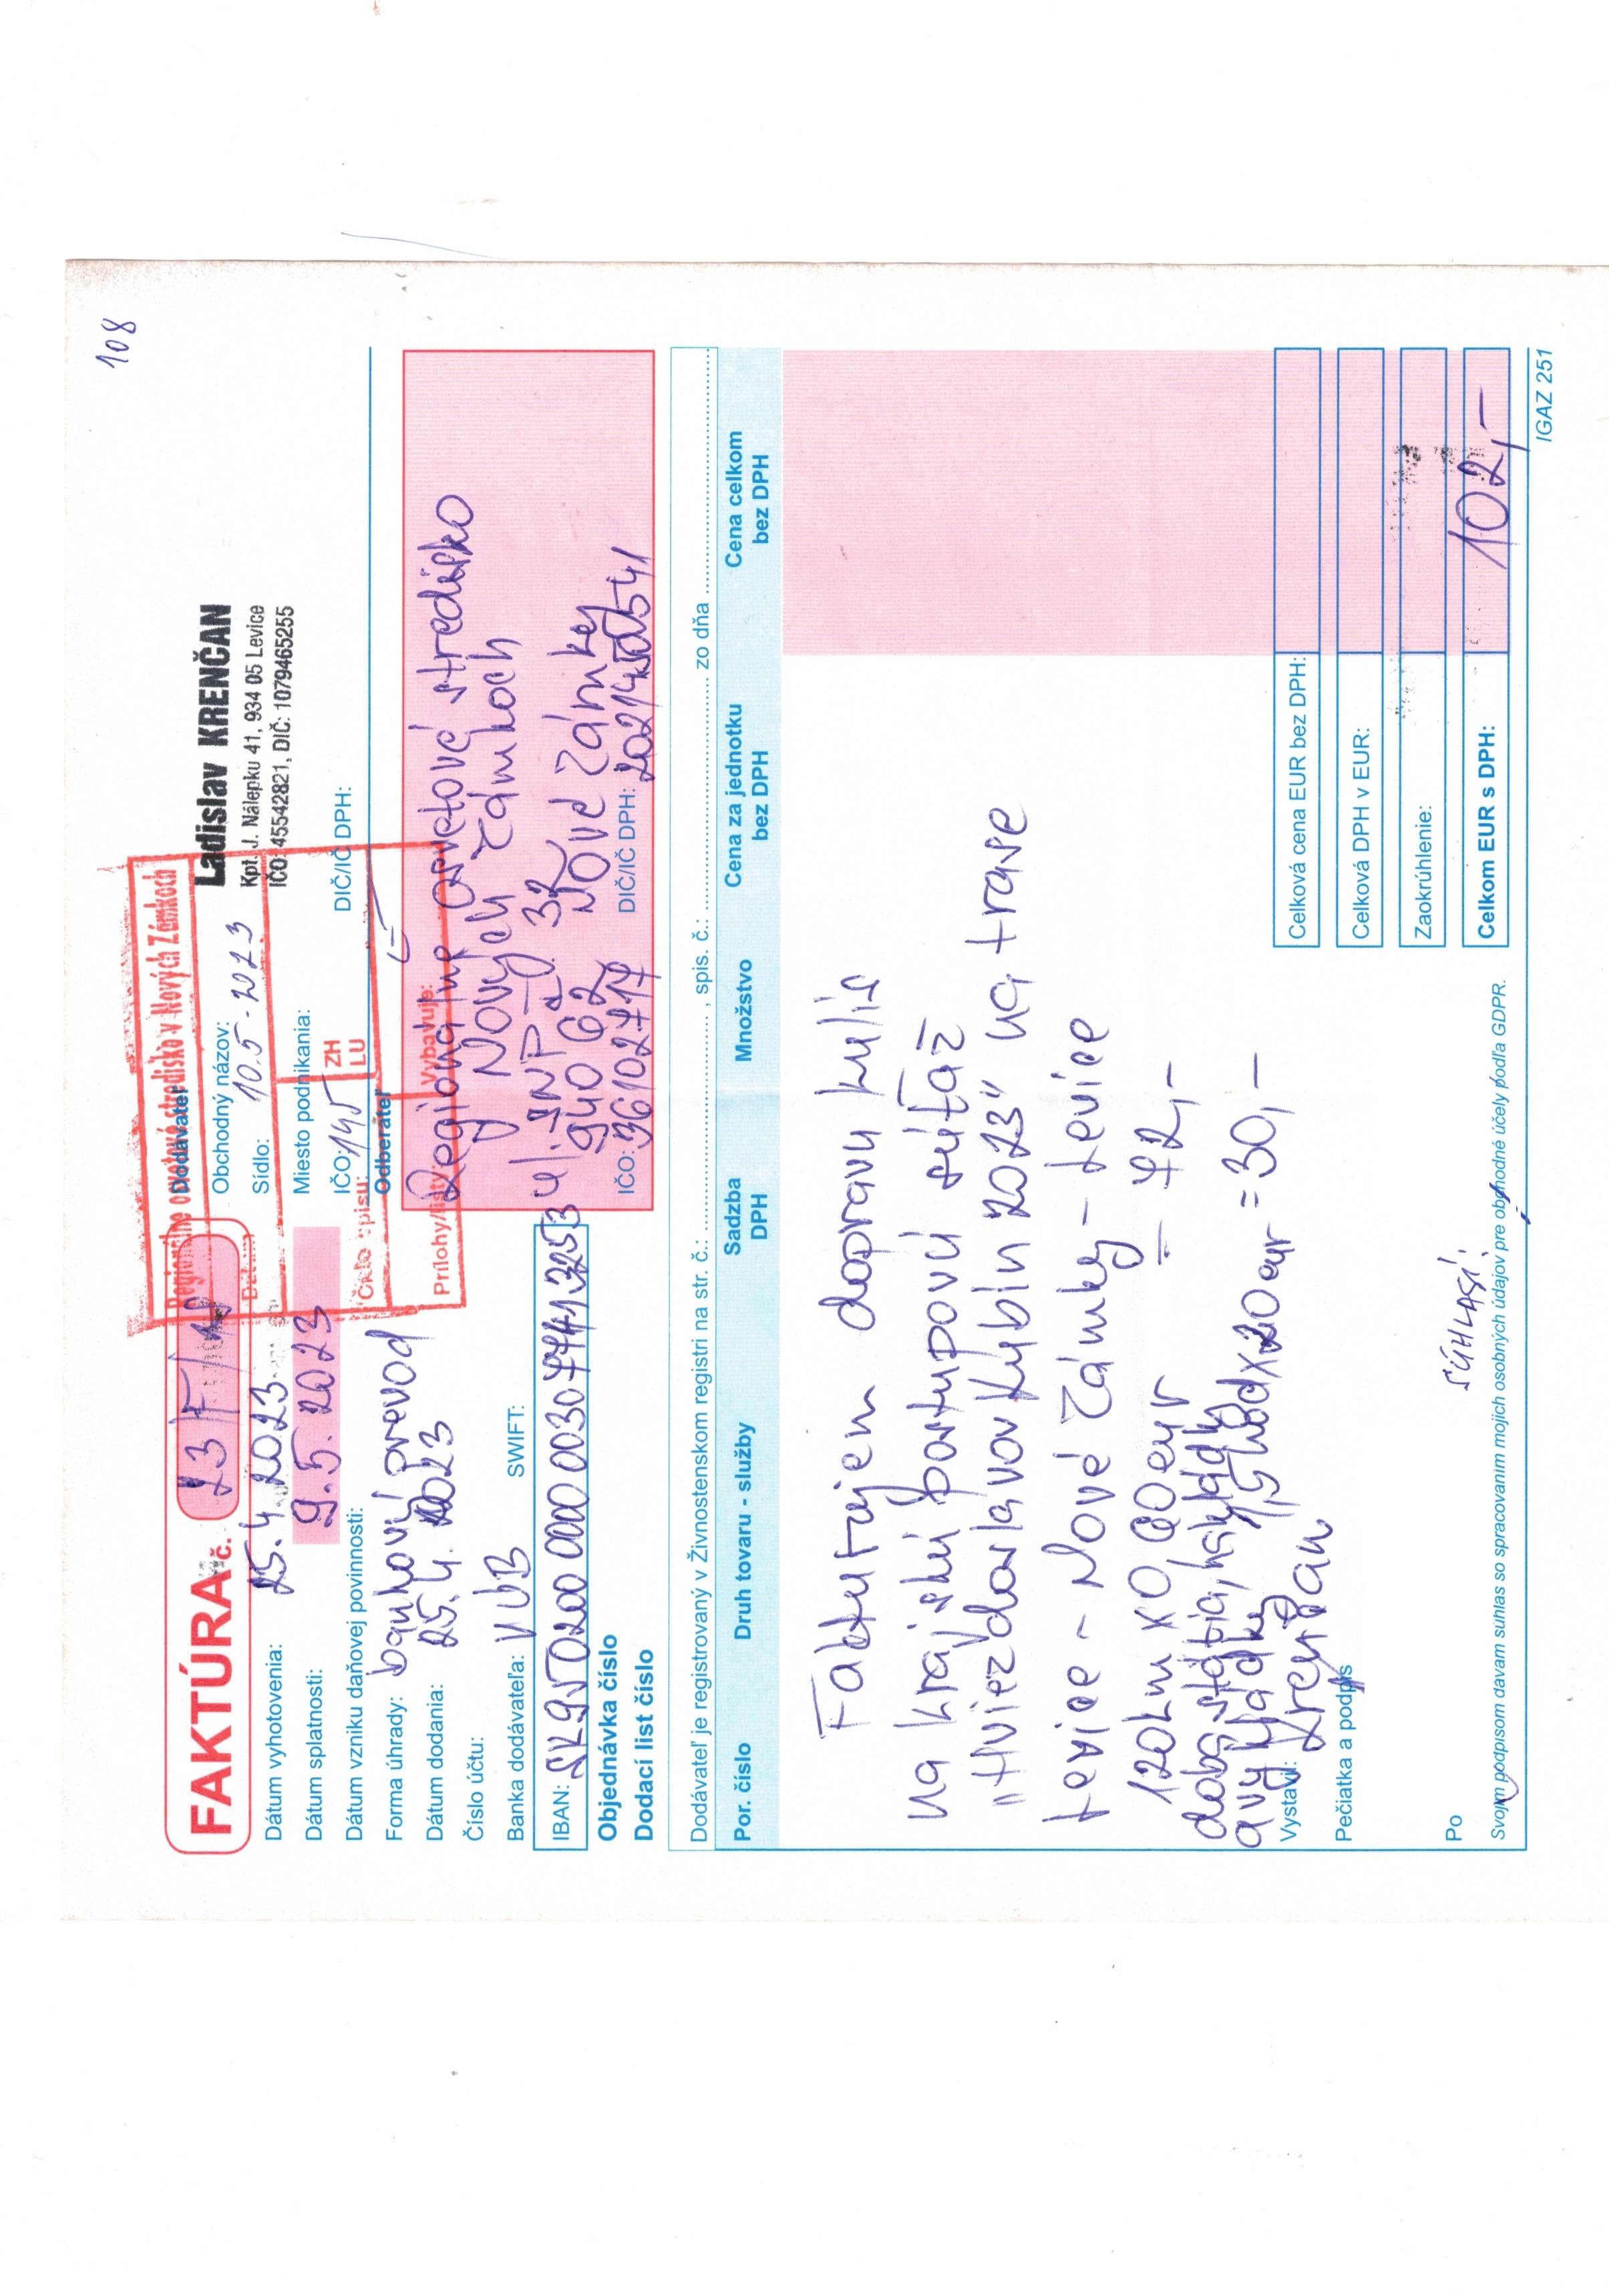 108
FAKTÚRA č.
Dátum vyhotovenia: 25.4.2023
Dátum splatnosti: 9.5.2023
Dátum vzniku daňovej povinnosti:
Forma úhrady: bankový prevod
Dátum dodania: 25.4.2023
Číslo účtu:
Banka dodávateľa: VÚB SWIFT:
IBAN:
Objednávka číslo
Dodací list číslo
Regionálne osvetové stredisko v Nových Zámkoch
Dodávateľ
Ladislav KRENČAN
Obchodný názov:
Kpt. J. Nálepku 41, 934 05 Levice
Sídlo:
10.5-2023
IČO: 45542821, DIČ: 1079465255
Miesto podnikania:
ZH
LU
IČO: DIČ/IČ DPH:
145
Číslo spisu:
Odberateľ
Prílohy/listy: Vybavuje:
Regionálne osvetové stredisko
v Nových Zámkoch
ul. SNP-u 32
940 62 Nové Zámky
IČO: 36102717 DIČ/IČ DPH:
Dodávateľ je registrovaný v Živnostenskom registri na str. č.: , spis. č.: zo dňa
Por. číslo Druh tovaru - služby Sadzba DPH Množstvo Cena za jednotku bez DPH Cena celkom bez DPH
Faktúrujem dopravu kulís
na krajskú postupovú súťaž
"Hviezdoslavov Kubín 2023" na trase
Levice - Nové Zámky - Levice
120km x 0,60 eur = 72,-
doba státia, nakládky
a vykládky 1,5hod x 20 eur = 30,-
Vystavil: Krenčan
Pečiatka a podpis
Celková cena EUR bez DPH:
Celková DPH v EUR:
Zaokrúhlenie:
Celkom EUR s DPH: 102,-
SÚHLASÍ!
Po
Svojím podpisom davam suhlas so spracovanim mojich osobných údajov pre obchodné účely podľa GDPR.
IGAZ 251